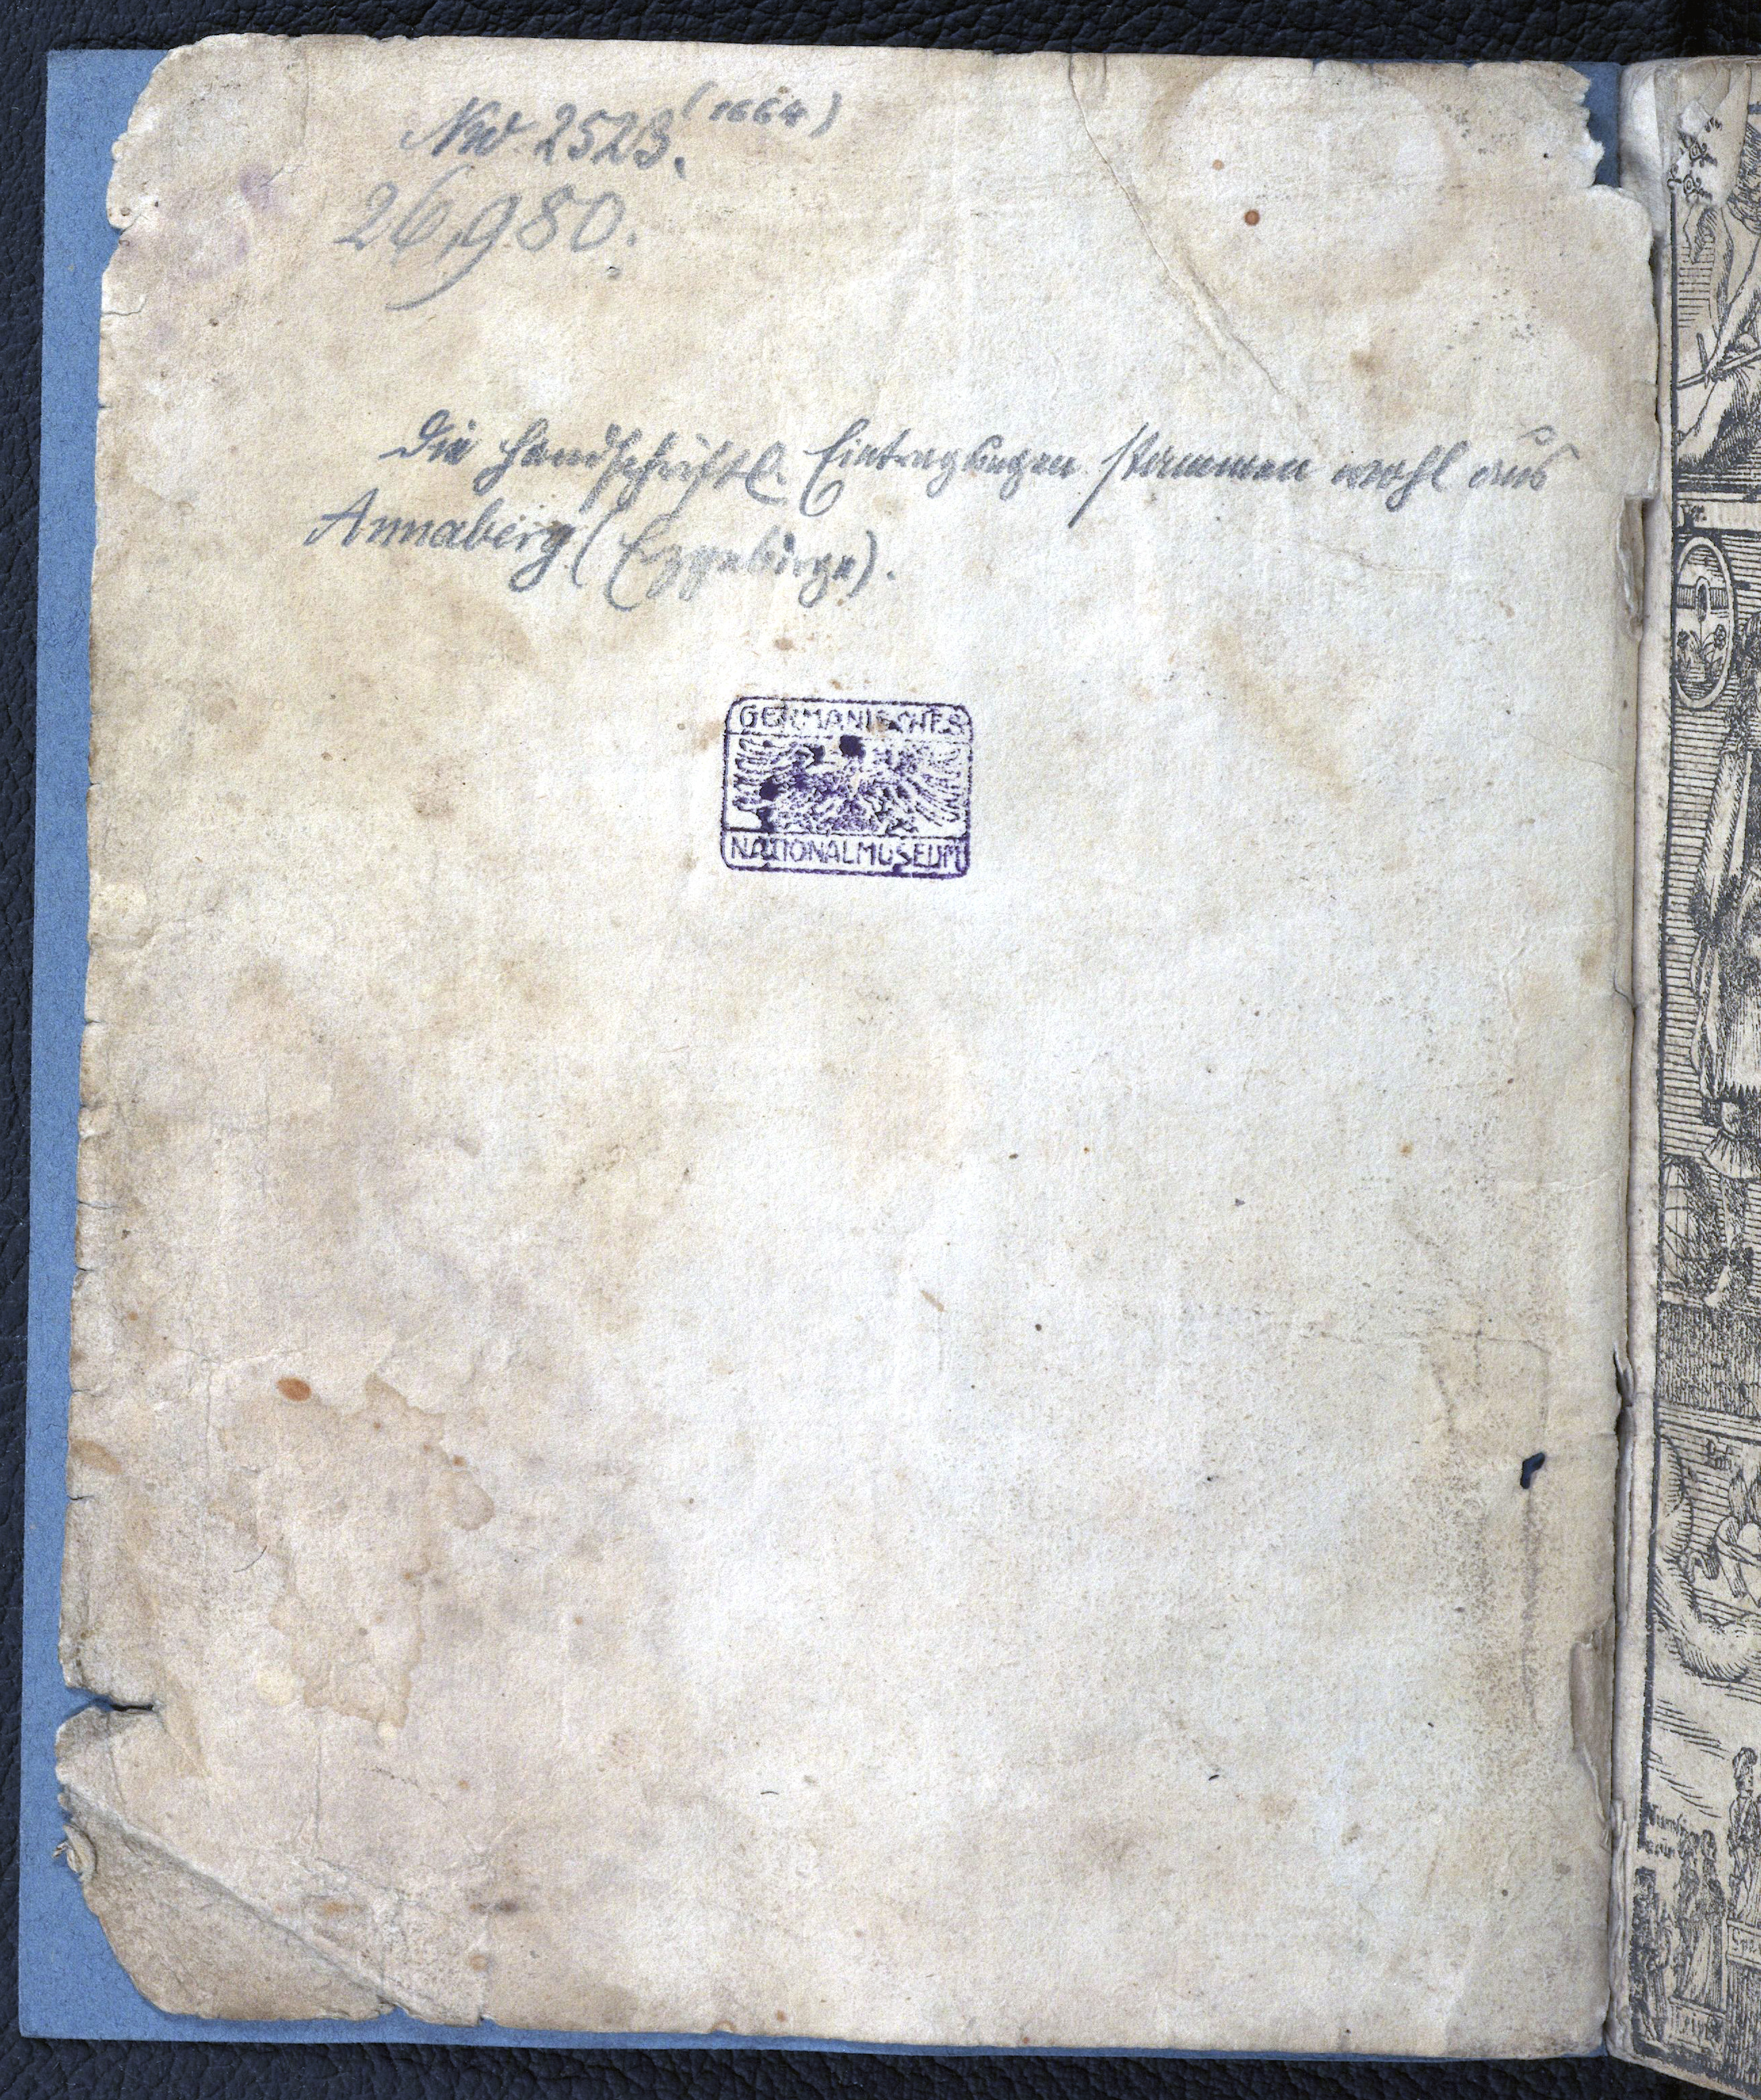 Nw 2523. (1664)
26,980.
Die handschriftl. Eintragungen stammen wohl aus
Annaberg (Erzgebirge).
GERMANISCHES
NATIONALMUSEUM